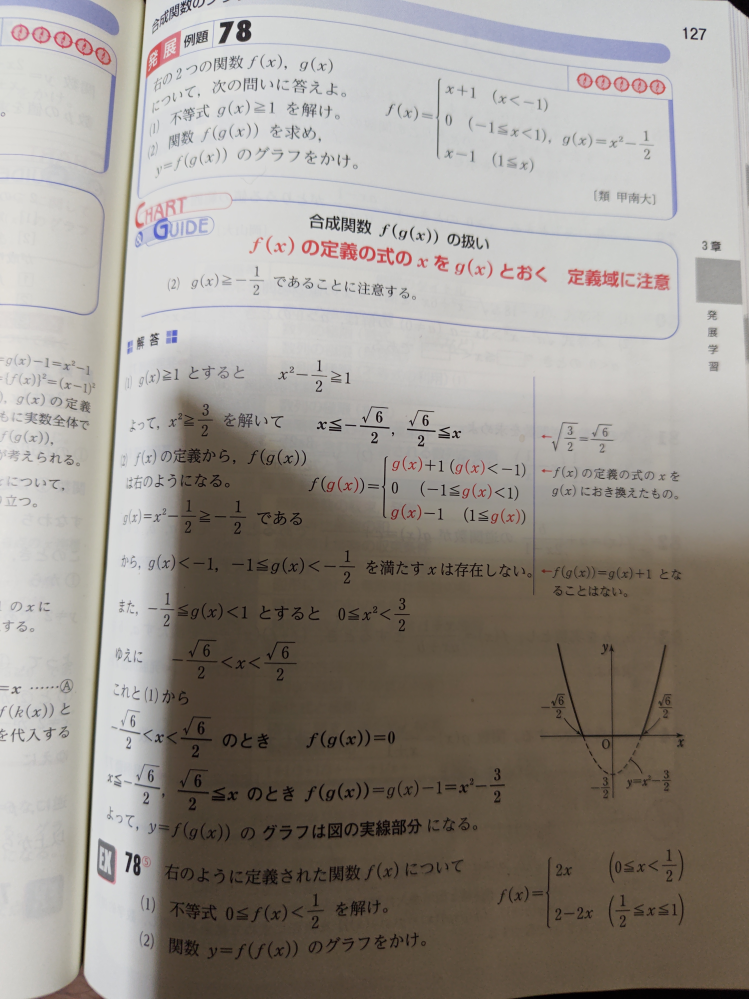 合成関数のグラ
127
発展 例題 78
右の2つの関数 f(x), g(x)
について，次の問いに答えよ。
(1) 不等式 g(x)≧1 を解け。
(2) 関数 f(g(x)) を求め，
y=f(g(x)) のグラフをかけ。
f(x)={ x+1 (x<-1)
0 (-1≦x<1), g(x)=x²-1/2
x-1 (1≦x)
[類 甲南大]
CHART & GUIDE
合成関数 f(g(x)) の扱い
f(x) の定義の式の x を g(x) とおく 定義域に注意
(2) g(x)≧-1/2 であることに注意する。
3章
発展学習
解答
(1) g(x)≧1 とすると x²-1/2≧1
よって，x²≧3/2 を解いて x≦-√6/2, √6/2≦x
←√(3/2)=√6/2
(2) f(x) の定義から，f(g(x))
は右のようになる。
f(g(x))={ g(x)+1 (g(x)<-1)
0 (-1≦g(x)<1)
g(x)-1 (1≦g(x))
←f(x) の定義の式の x を
g(x) におき換えたもの。
g(x)=x²-1/2≧-1/2 である
から，g(x)<-1, -1≦g(x)<-1/2 を満たす x は存在しない。
←f(g(x))=g(x)+1 とな
ることはない。
また，-1/2≦g(x)<1 とすると 0≦x²<3/2
ゆえに -√6/2<x<√6/2
これと(1)から
-√6/2<x<√6/2 のとき f(g(x))=0
x≦-√6/2, √6/2≦x のとき f(g(x))=g(x)-1=x²-3/2
よって，y=f(g(x)) の グラフは図の実線部分 になる。
y
-√6/2
√6/2
O
x
-3/2
y=x²-3/2
EX 78⑤ 右のように定義された関数 f(x) について
(1) 不等式 0≦f(x)<1/2 を解け。
(2) 関数 y=f(f(x)) のグラフをかけ。
f(x)={ 2x (0≦x<1/2)
2-2x (1/2≦x≦1)
=g(x)-1=x²-1
={f(x)}²=(x-1)²
), g(x) の定義
もに実数全体で
f(g(x)),
が考えられる。
について，
り立つ。
1 のxに
する。
=x ……Ⓐ
f(k(x)) と
を代入する